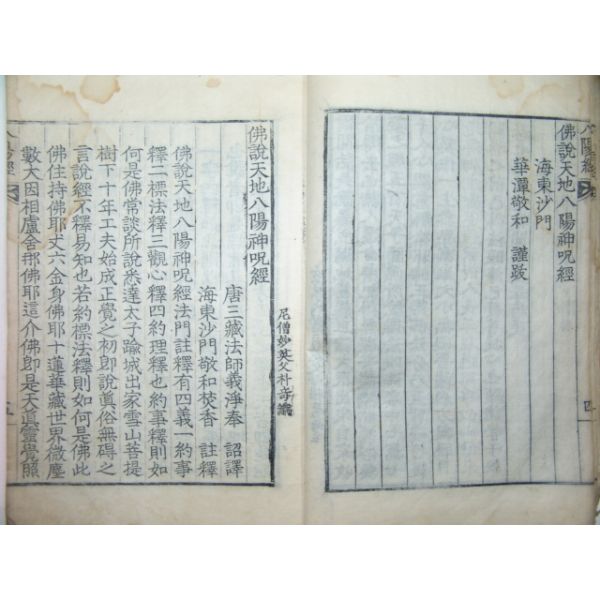 八陽經
四
佛說天地八陽神呪經
海東沙門
華潭敬和 謹跋
尼僧妙英父朴奇
唐三藏法師義淨奉 詔譯
海東沙門敬和焚香 註釋
佛說天地八陽神呪經
佛說天地八陽神呪經法門註釋有四義一約事
釋二標法釋三觀心釋四約理釋也約事釋則如
何是佛常談所說悉達太子踰城出家雪山菩提
樹下十年工夫始成正覺之初即說眞俗無碍之
言說經不釋易知也若約標法釋則如何是佛此
佛住持佛耶丈六金身佛耶十蓮華藏世界微塵
數大因相盧舍那佛耶這介佛即是天眞靈覺照
八陽經
五